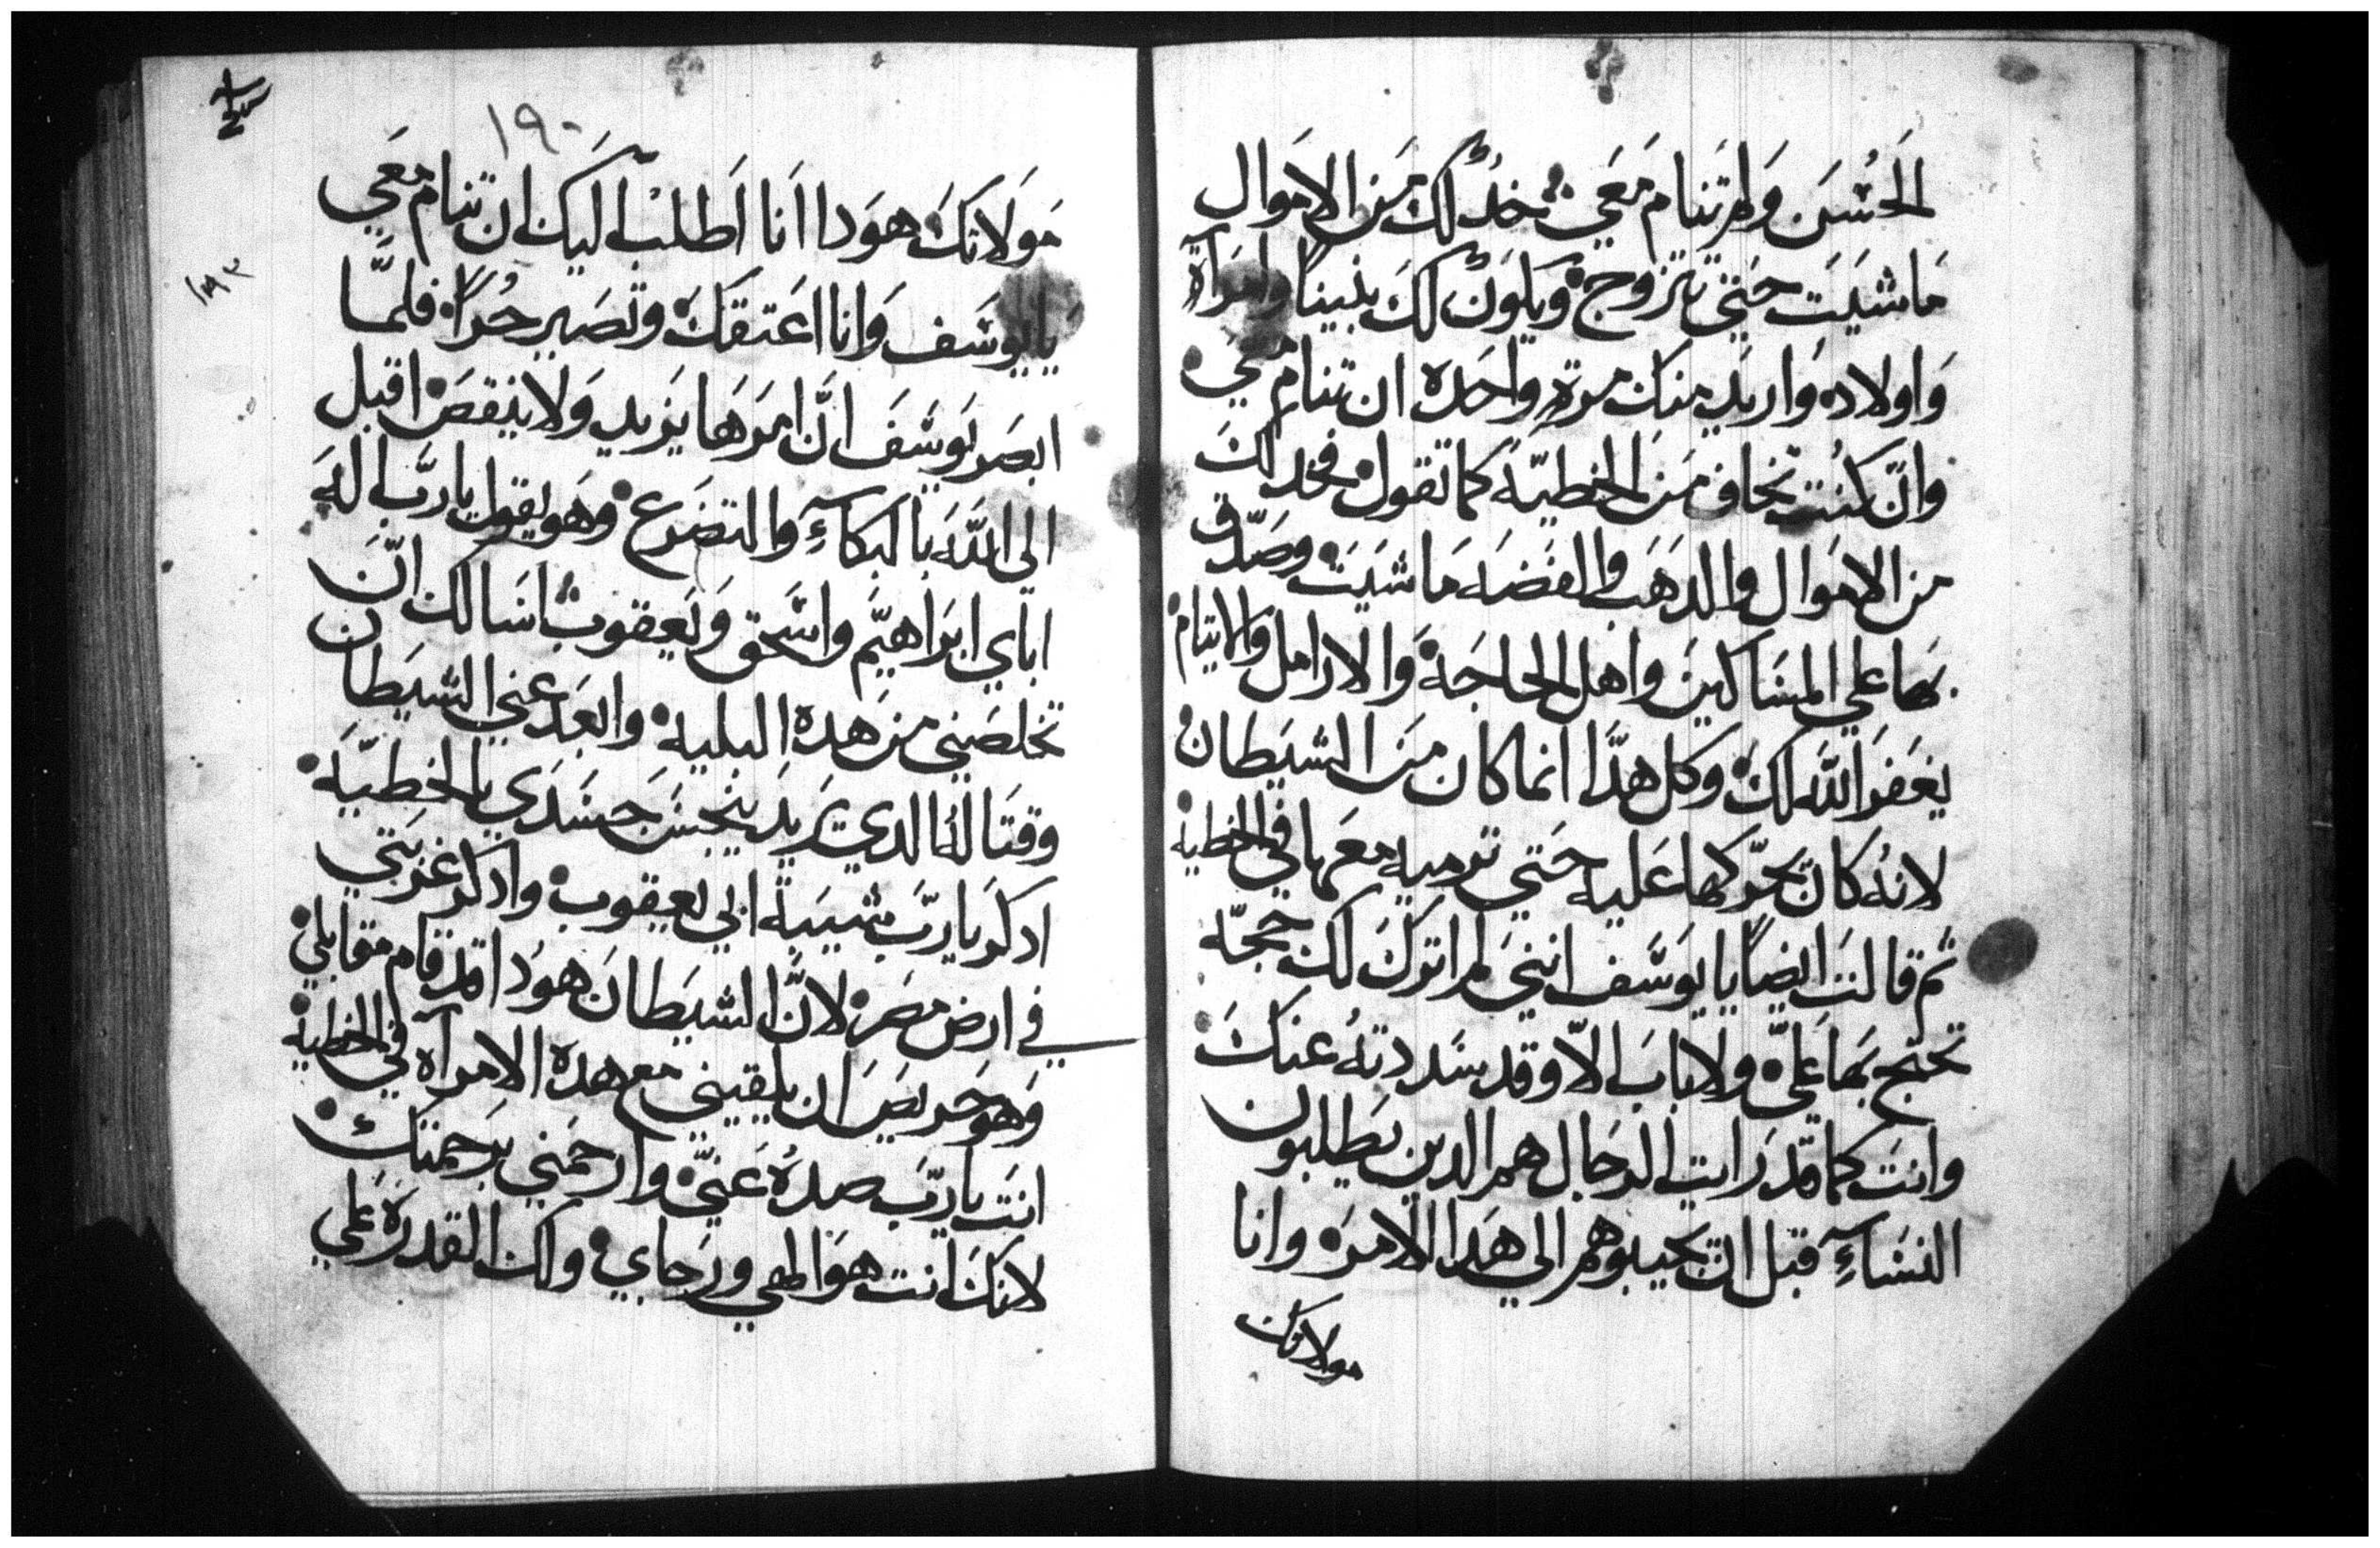 الحُسَن ولم تنام مَعَي فخدُ لك مَن الامَوال
مَا شيَت حَتي تتزوج ويَكوَن لك بنيناً وامَرآة
وَاولاده وَاريَد مَنك مرةٍ واحَده ان تنام مَعَي
وانّ كنُت تخاف مَن الخطيّه كما تقول فخد لكَ
من الامَوال والدهَب والفضَه مَا شيَت وصَدّق
بهَا علي المسَاكينَ واهل الحاجَة وَالارامل والايتام
يغفَر اللّه لكَ وكل هدَّا انما كان مَن الشيَطان
لانهُ كانّ يحَرّكها عَليه حَتي ترميه معَها في الخطيه
ثم قالت ايضاً يا يوسَف انني لم اترك لك حَجّه
تحتج بهَا عَليّ ولا بابَ الاّ وقد سَددتهُ عنكَ
وانتَ كما قد رَايت الرجَال هم الدين يَطلبون
النسَآءِ قبل ان يحيبوهم الي هَدا الامرَ وانا
مولاتك
١٩٠
١٩٣
مَولاتكَ هوَدا انَا اَطلب اليك ان تنام مَعَي
يا يوسَف وَانا اعَتقكَ وتصَير حُراً فلمَّا
ابصَر يوَسَفَ انَّ امَرَهَا يزيد وَلا ينقصَ اقبل
الي اللَّه بَالبكآءِ والتضَرع وهَو يقول يا ربّ الهَ
اباي ابرَاهيَّم واسَحق وَيَعقوب اسَالك انّ
تخلصَني مَن هَده البليه وابعَد عَني الشيَطان
وقتَالهُ الدي يَريَد ينجسَ جسَدَي بالخطيّه
ادكرَ يا ربّ شيبَة ابي يَعقوب وادكر غربَتي
في ارض مصَر لانّ الشيَطانَ هوَدا قد قام مقابلي
وَهوَ حَريصَ ان يلقيني مع هده الامرآه في الخطيه
انتَ يا ربّ صدهُ عَنيّ وارحمَني برَحمتك
لانكَ انت هوَ الهي ورَجاي ولك القدرَة عَلي